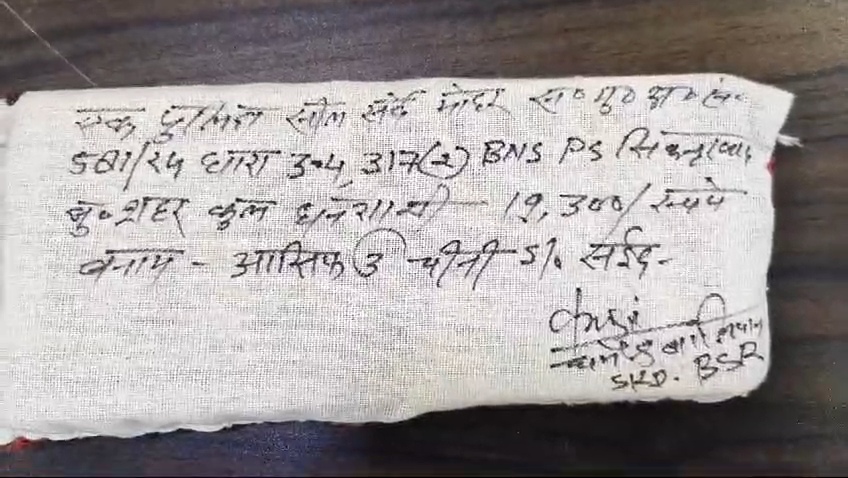 एक पुलिन्दा सील सर्व मोहर स० मु० अ० सं०
581/24 धारा 304, 317(2) BNS PS सिकन्द्राबाद
बु०शहर कुल धनराशी - 19,300/ रुपये
बनाम - आसिफ उ चीनी S/o सईद -
SKD. BSR